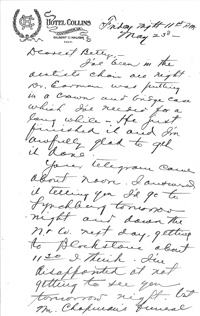 HOTEL COLLINS
Friday night 11 P.M.
May 23rd
Dearest Betty,
I've been in the
dentists chair all night.
Dr. was putting
in a crown and bridge
which I've needed for a
long while - He just
finished it and I'm
awfully glad to get
it done.
Your telegram came
about noon. I answered
it telling you I'd go to
Lynchburg tomorrow
night and down the
N. & W. next day, getting
to Blackstone about
11:30 I think. I'm
disappointed at not
getting to see you
tomorrow night. but
Mr. Chapman's funeral